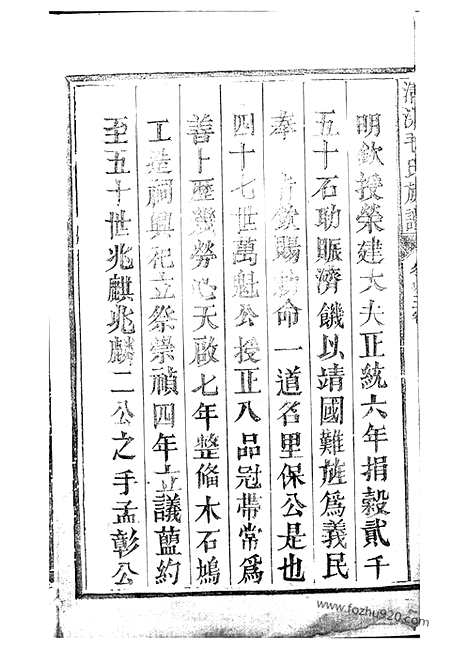 清漾毛氏族譜
明欽授榮建大夫正統六年捐穀貳千
五十石助賑濟饑以靖國難旌為義民
奉 旨欽賜勅命一道名里保公是也
四十七世萬魁公授正八品冠帶常為
善十歷幾勞心天啟七年整脩木石鳩
工造祠興祀立祭崇禎四年立議藍約
至五十世兆麒兆麟二公之手孟彰公
www.fozhu920.com